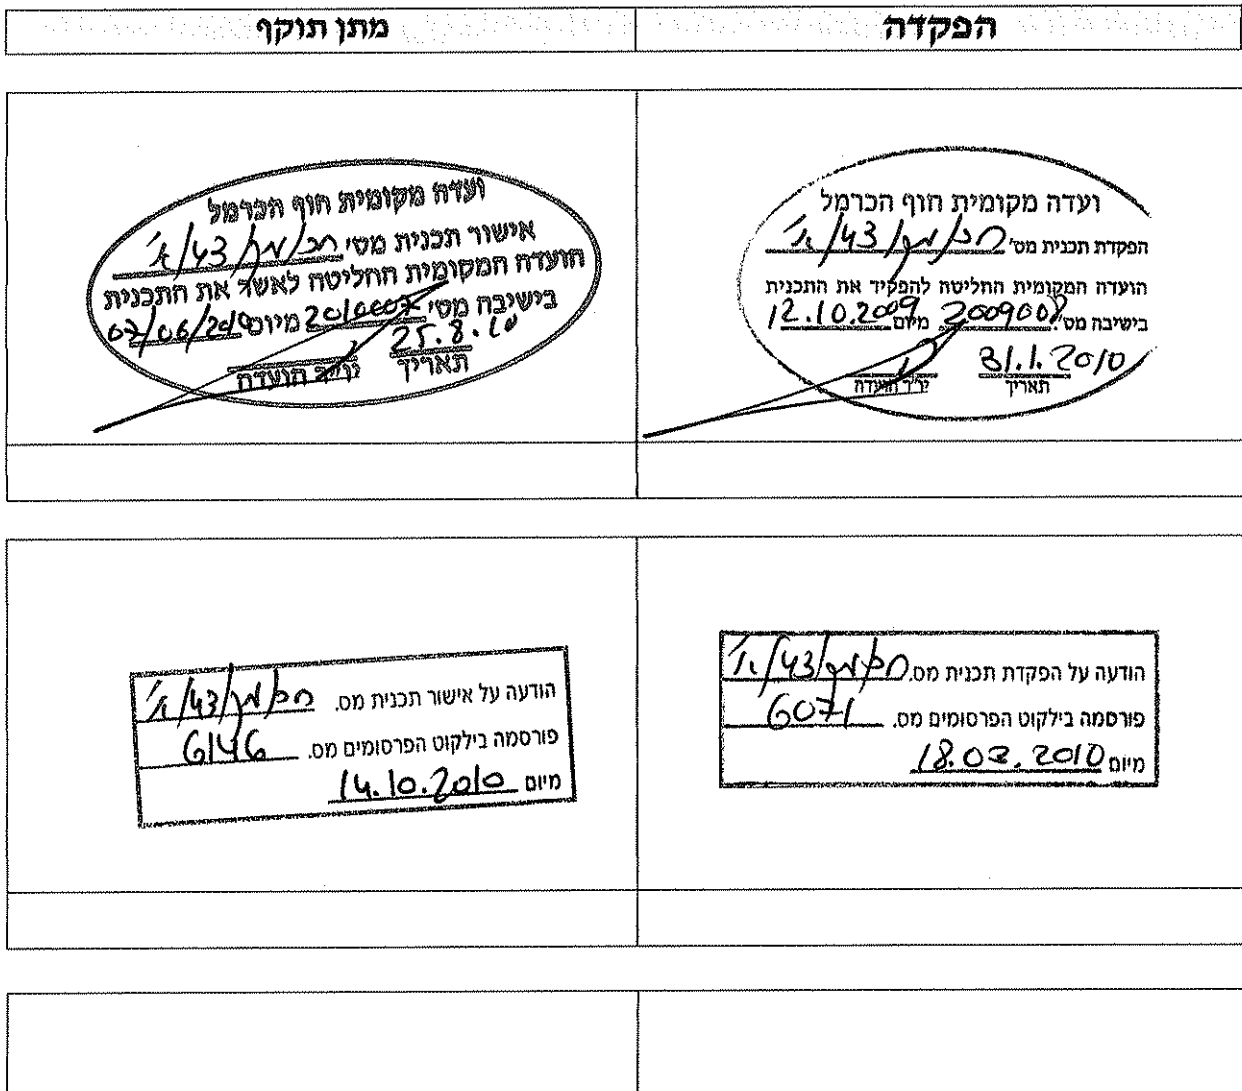 הפקדה
מתן תוקף
ועדה מקומית חוף הכרמל
הפקדת תכנית מס' חכ/מק/43/א'
הועדה המקומית החליטה להפקיד את התכנית
בישיבה מס' 2009008 מיום 12.10.2009
31.1.2010
יו"ר הועדה תאריך
ועדה מקומית חוף הכרמל
אישור תכנית מס' חכ/מק/43/א'
הועדה המקומית החליטה לאשר את התכנית
בישיבה מס' 2010007 מיום 07/06/2010
25.8.10
תאריך יו"ר הועדה
הודעה על הפקדת תכנית מס. חכ/מק/43/א'
פורסמה בילקוט הפרסומים מס. 6071
מיום 18.03.2010
הודעה על אישור תכנית מס. חכ/מק/43/א'
פורסמה בילקוט הפרסומים מס. 6146
מיום 14.10.2010